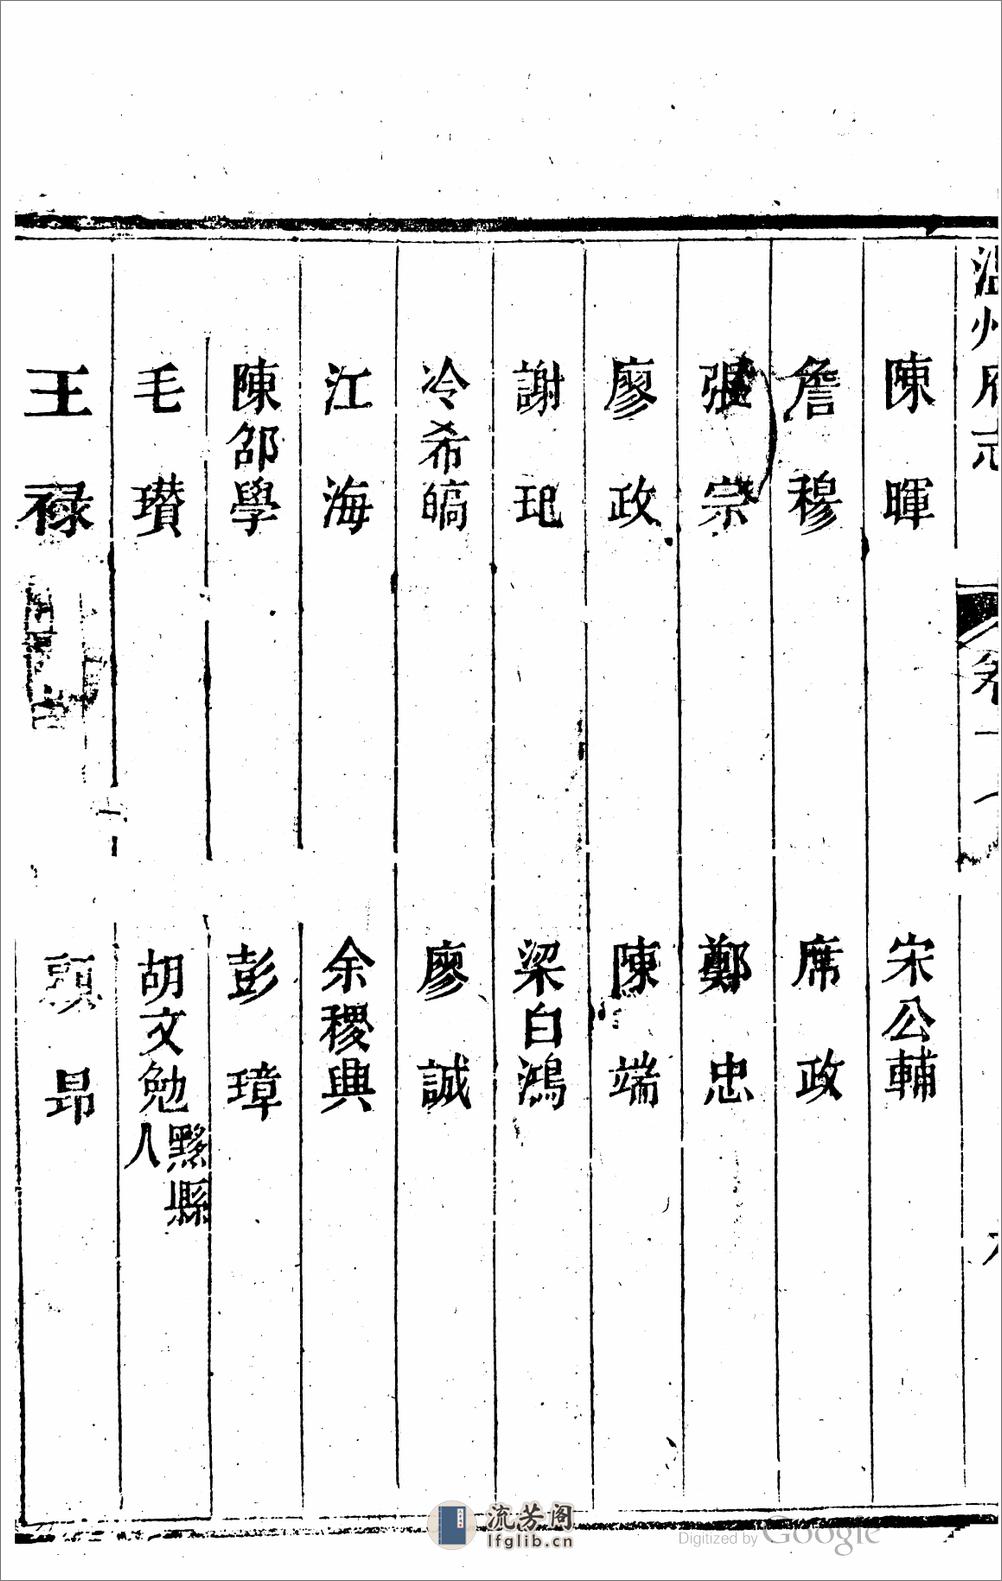 溫州府志
卷十七
陳暉　宋公輔
詹穆　席政
張宗　鄭忠
廖政　陳端
謝玘　梁白鴻
冷希皜　廖誠
江海　余稷典
陳郃學　彭璋
毛瓚　胡文勉黟縣人
王祿　昂
流芳阁
lfglib.cn
Digitized by Google